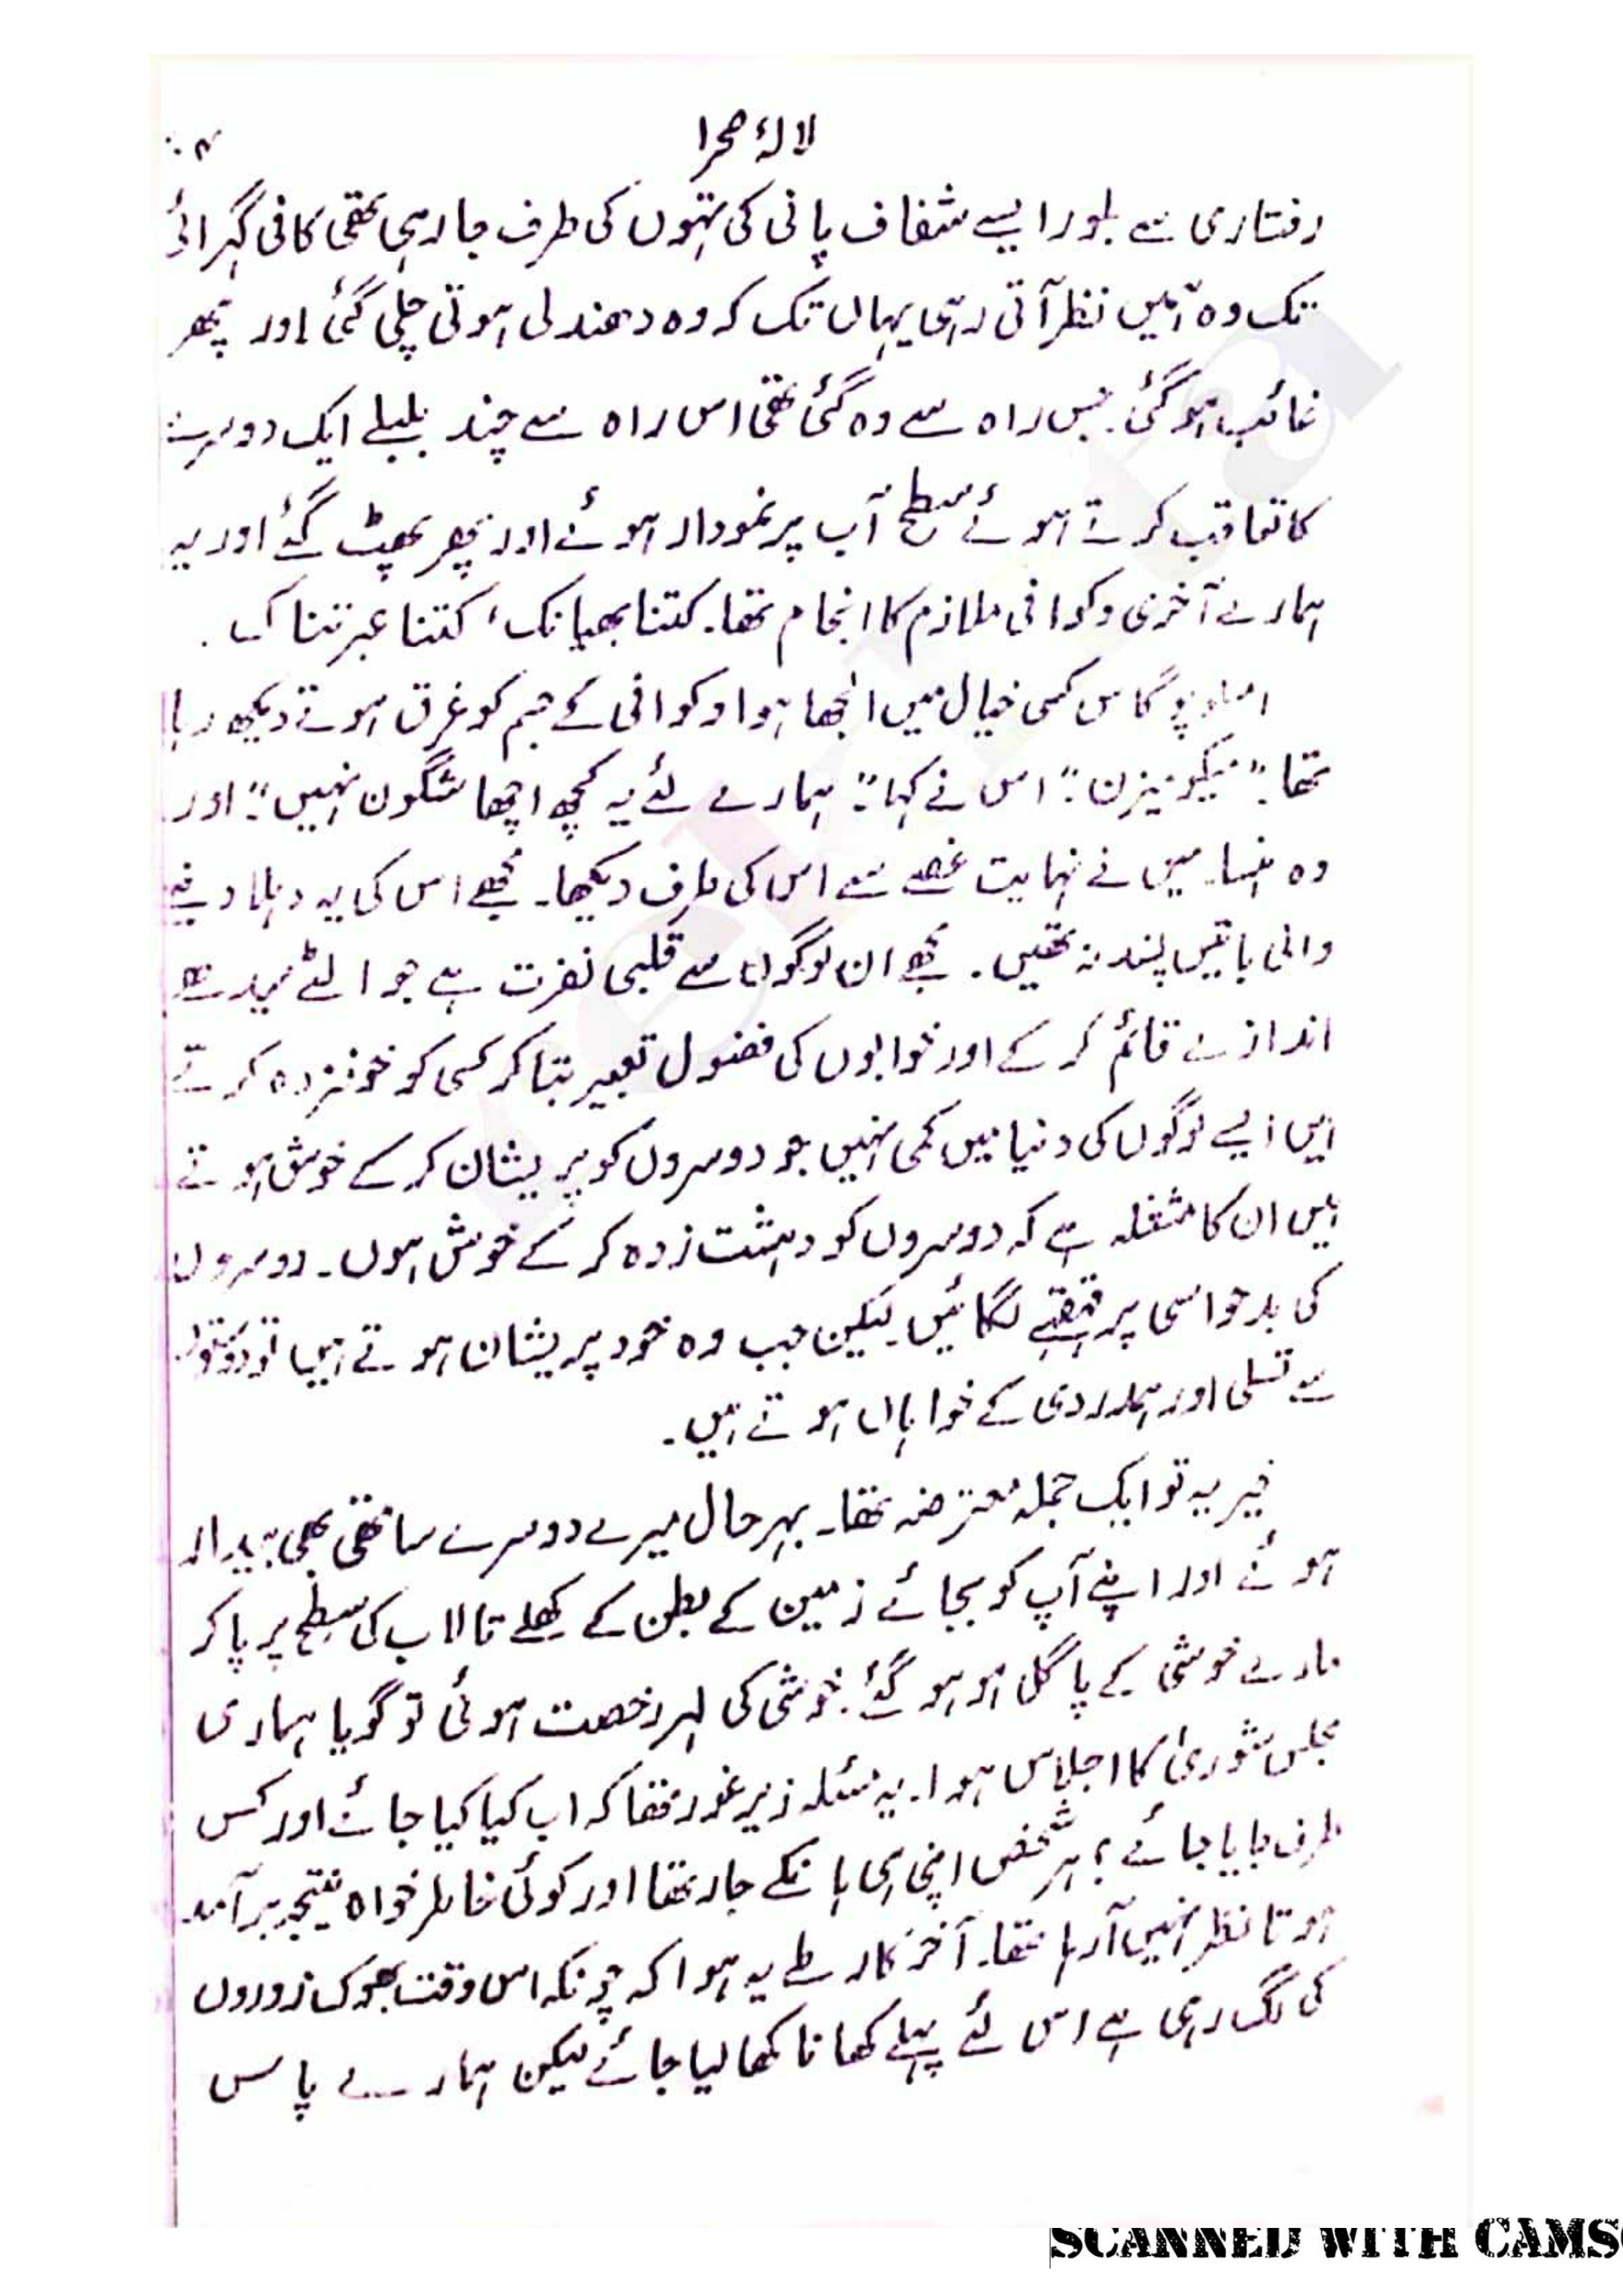 لالۂ صحرا
رفتاری سے بلور ایسے شفاف پانی کی تہوں کی طرف جا رہی تھی کافی گہرائی
تک وہ ہمیں نظر آتی رہی یہاں تک کہ وہ دھندلی ہوتی چلی گئی اور پھر
غائب ہو گئی۔ جس راہ سے وہ گئی تھی اس راہ سے چند بلبلے ایک دوسرے
کا تعاقب کرتے ہوئے سطح آب پر نمودار ہوئے اور پھر پھٹ گئے اور یہ
ہمارے آخری وکوافی ملازم کا انجام تھا۔ کتنا بھیانک، کتنا عبرتناک۔
امسلوپوگاس کسی خیال میں الجھا ہوا وکوافی کے جسم کو غرق ہوتے دیکھ رہا
تھا۔ "میکومیزن"۔ اس نے کہا "۔ ہمارے لئے یہ کچھ اچھا شگون نہیں"۔ اور
وہ ہنسا۔ میں نے نہایت غصے سے اس کی طرف دیکھا۔ مجھے اس کی یہ دہلا دینے
والی باتیں پسند نہ تھیں۔ مجھے ان لوگوں سے قلبی نفرت ہے جو الٹے سیدھے
اندازے قائم کر کے اور خوابوں کی فضول تعبیر بتا کر کسی کو خوفزدہ کرتے
ہیں ایسے لوگوں کی دنیا میں کمی نہیں جو دوسروں کو پریشان کر کے خوش ہوتے
ہیں ان کا مشغلہ ہے کہ دوسروں کو دہشت زدہ کر کے خوش ہوں۔ دوسروں
کی بدحواسی پر قہقہے لگائیں۔ لیکن جب وہ خود پریشان ہوتے ہیں تو
سے تسلی اور ہمدردی کے خواہاں ہوتے ہیں۔
خیر یہ تو ایک جملہ معترضہ تھا۔ بہرحال میرے دوسرے ساتھی بھی بیدار
ہوئے اور اپنے آپ کو بجائے زمین کے بطن کے کھلے تالاب کی سطح پر پا کر
مارے خوشی کے پاگل ہو ہو گئے۔ خوشی کی لہر رخصت ہوئی تو گویا ہماری
مجلس شوریٰ کا اجلاس ہوا۔ یہ مسئلہ زیر غور تھا کہ اب کیا کیا جائے اور کس
طرف جایا جائے؟ ہر شخص اپنی ہی ہانکے جا رہا تھا اور کوئی خاطر خواہ نتیجہ برآمد
ہوتا نظر نہیں آ رہا تھا۔ آخر کار طے یہ ہوا کہ چونکہ اس وقت بھوک زوروں
کی لگ رہی ہے اس لئے پہلے کھانا کھا لیا جائے لیکن ہمارے پاس
SCANNED WITH CAMS